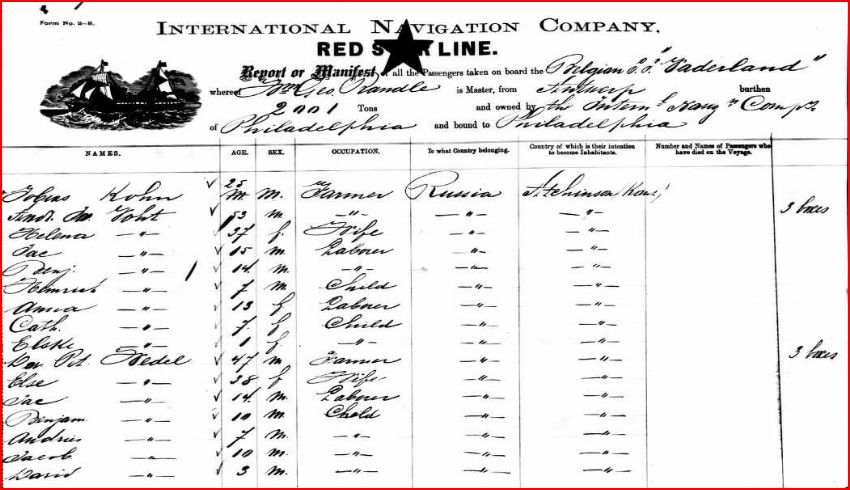 Form No. 2-B.
INTERNATIONAL NAVIGATION COMPANY.
RED STAR LINE.
Report or Manifest of all the Passengers taken on board the Belgian S.S. "Vaderland"
whereof Geo. Randle is Master, from Antwerp burthen
2001 Tons and owned by the Intern'l Navig'n Comp'y
of Philadelphia and bound to Philadelphia
NAMES. AGE. SEX. OCCUPATION. To what Country belonging. Country of which is their intention to become Inhabitants. Number and Names of Passengers who have died on the Voyage.
Tobias Kohn 25 M. Farmer Russia Atchinson Kans.
Voht 53 m. -"- -"- -"- 3 boxes
Helena -"- 37 f Wife -"- -"-
Jac -"- 15 m. Laborer -"- -"-
Benj. -"- 14 m. -"- -"- -"-
Heinrich -"- 7 m Child -"- -"-
Anna -"- 13 f Laborer -"- -"-
Cath. -"- 7 f Child -"- -"-
Elske -"- 1 f -"- -"-
Pet. Hedel 47 m Farmer -"- -"- 3 boxes
Else -"- 38 f Wife -"- -"-
Jac -"- 14 m. Laborer -"- -"-
Benjam -"- 10 m. Child -"- -"-
Andries -"- 7 m. -"- -"- -"-
Jacob -"- 10 m. -"- -"- -"-
David -"- 3 m. -"- -"- -"-